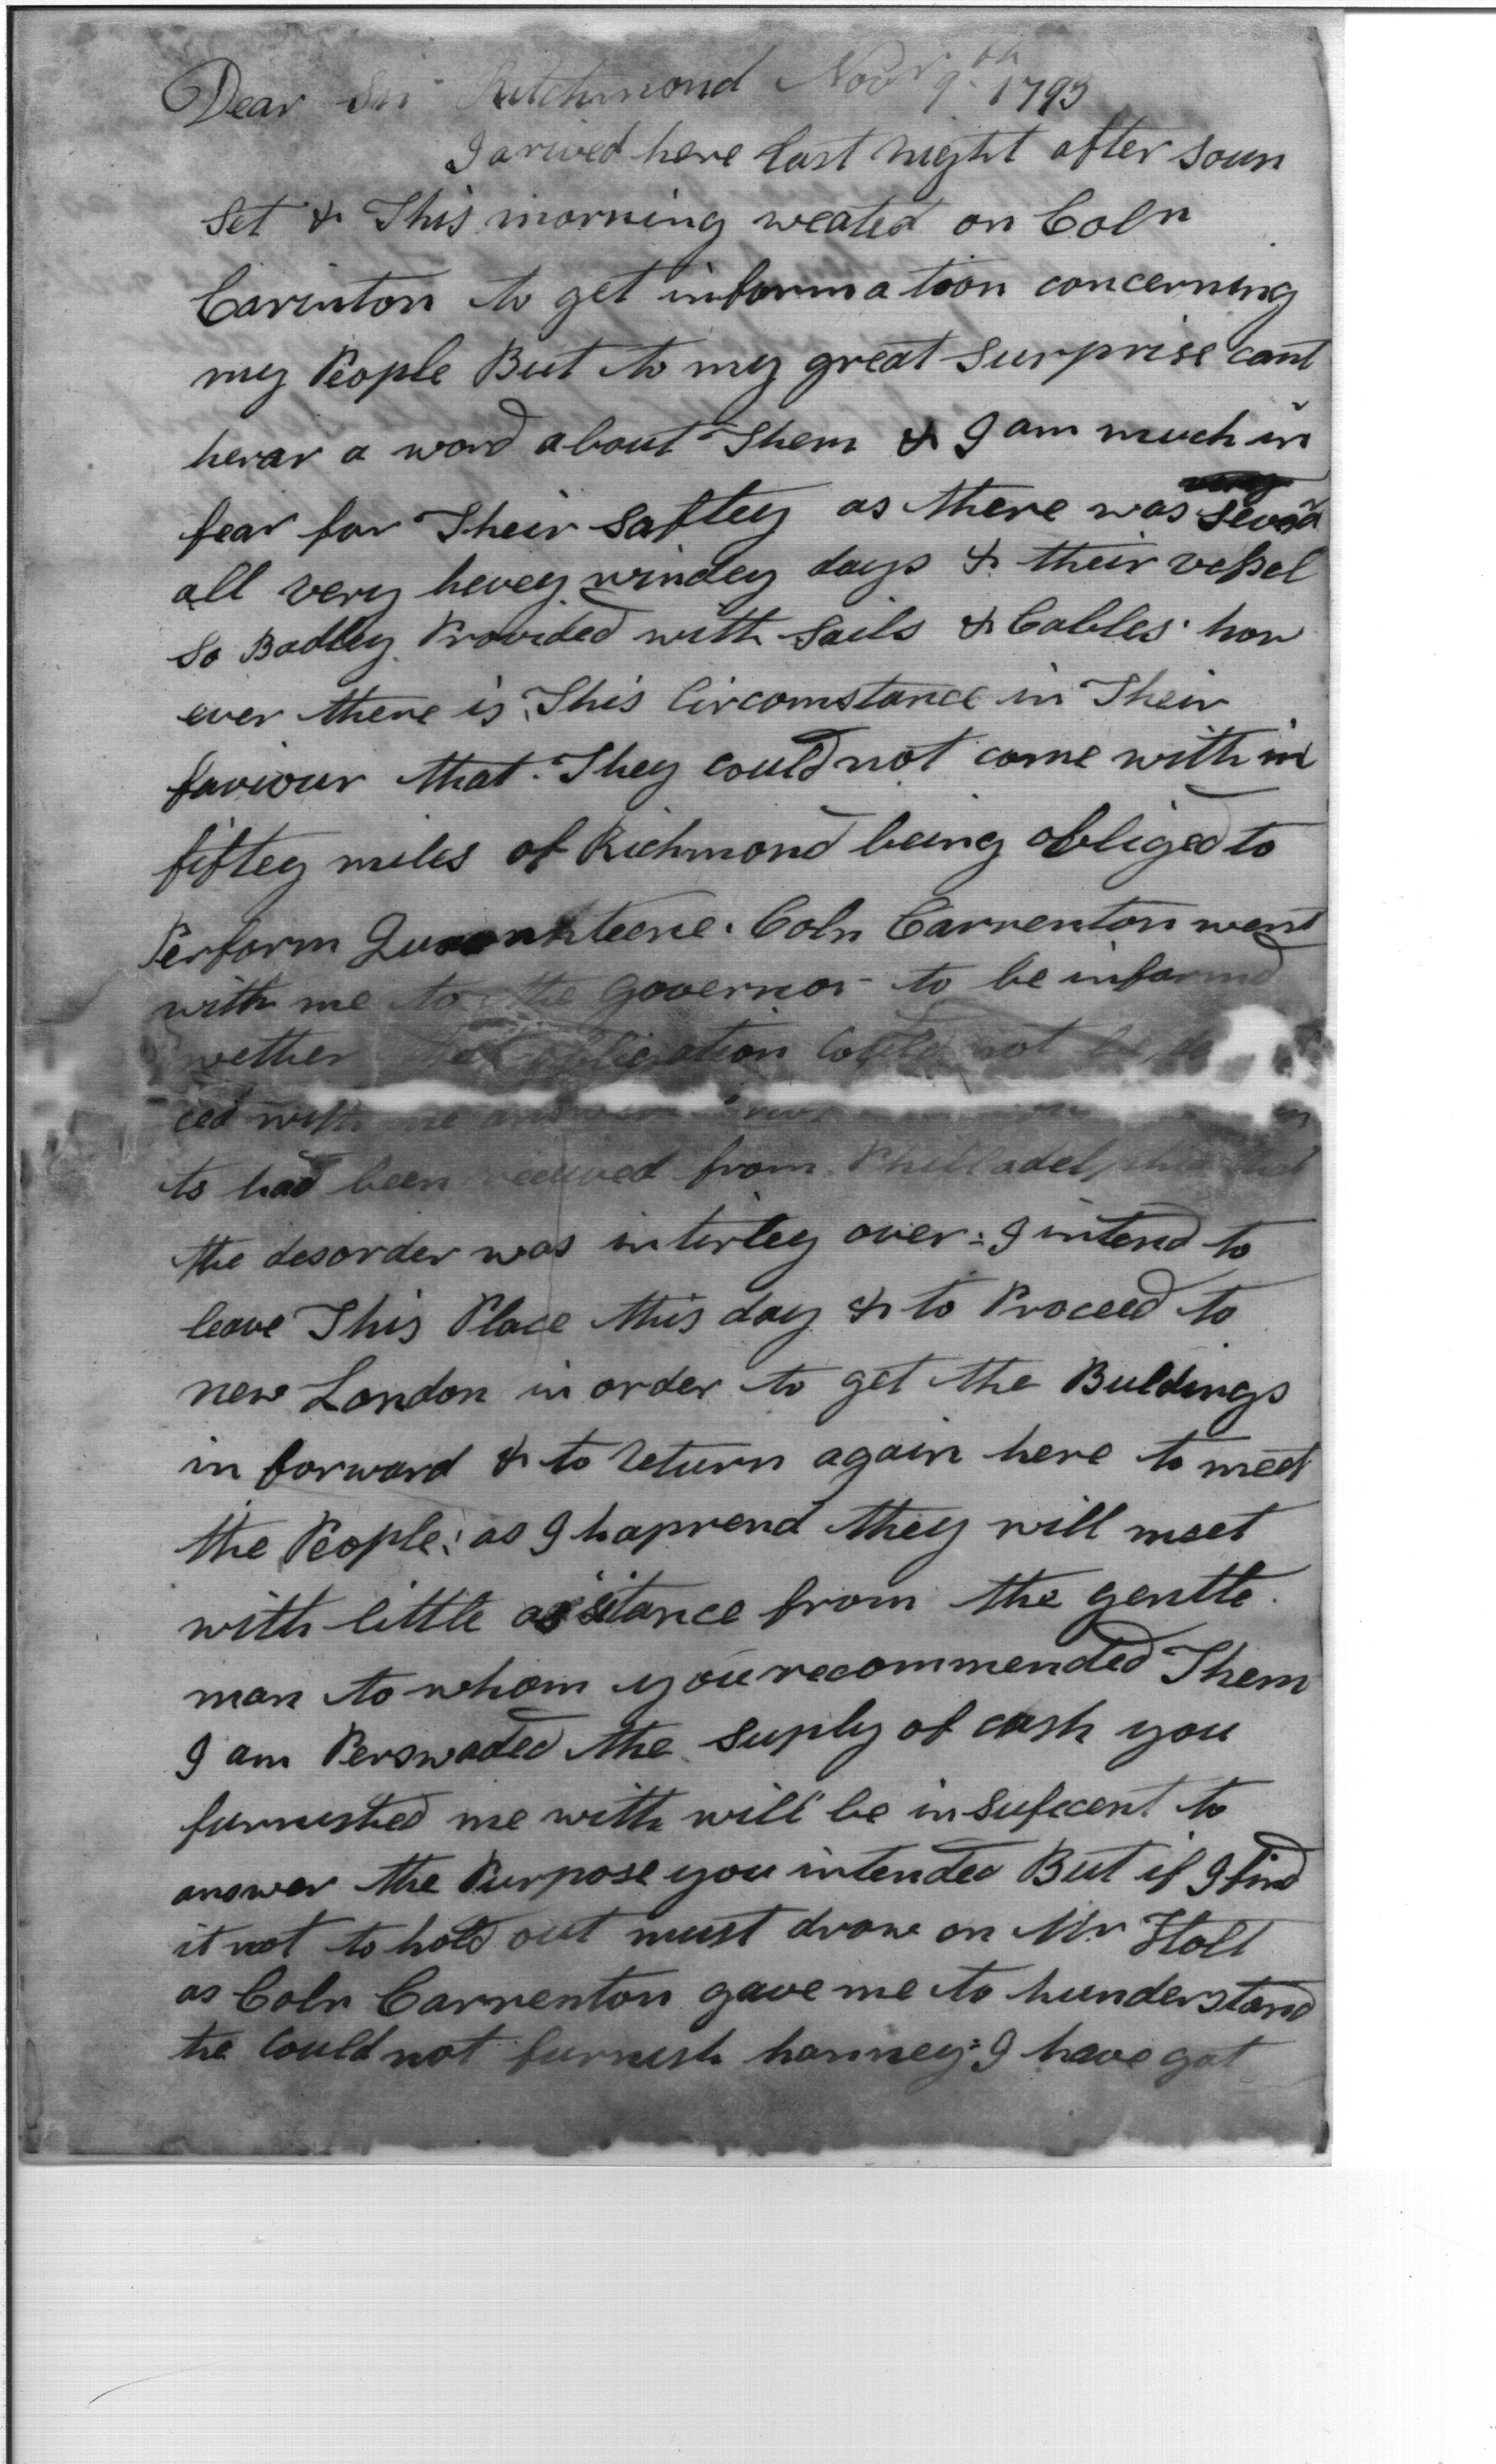 Dear Sir Ritchmond Novr 9th 1793
I arived here last night after soun
set & This morning weated on Coln
Carinton to get information concerning
my People But to my great surprise cant
herar a word about Them & I am much in
fear for Their saftey as there was sever
all very hevey windey days & their vessel
so Badley Provided with sails & Cables how
ever there is This Circomstance in Their
faviour that They could not come with in
fiftey miles of Richmond being obliged to
Perform Quarenteene. Coln Carrenton went
with me to the Governor to be informd
wether the obligation Could not be
ced with
to had been received from Philladelphia that
the desorder was intirley over: I intend to
leave This Place this day & to Proceed to
new London in order to get the Buldings
in forward & to return again here to meet
the People: as I haprend they will meet
with little asistance from the gentle
man to whom you recommended Them
I am Perswaded the suply of cash you
furnished me with will be insuficent to
answer the Purpose you intended But if I find
it not to hold out must draw on Mr Holl
as Coln Carrenton gave me to hunderstand
he Could not furnish hanney: I have got